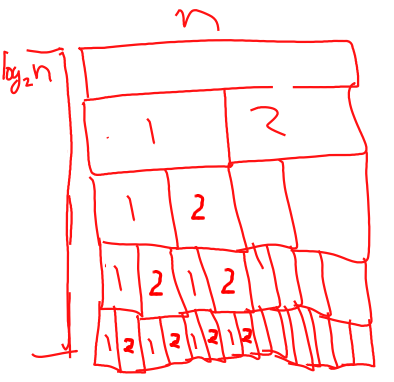 n
log₂n
1 2
1 2
1 2 1 2
1 2 1 2 1 2 1 2